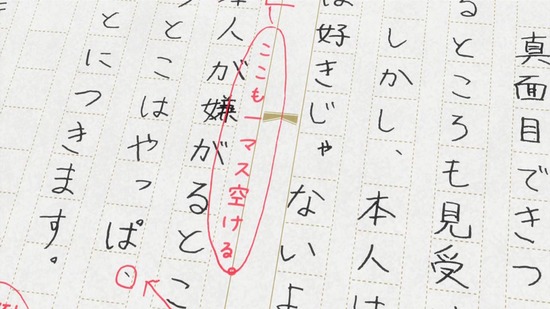 真面目できっ
るところも見受
しかし、本人は
は好きじゃないよ
ここも一マス空ける。
本人が嫌がるとこ
っとこはやっぱ、
とにつきます。